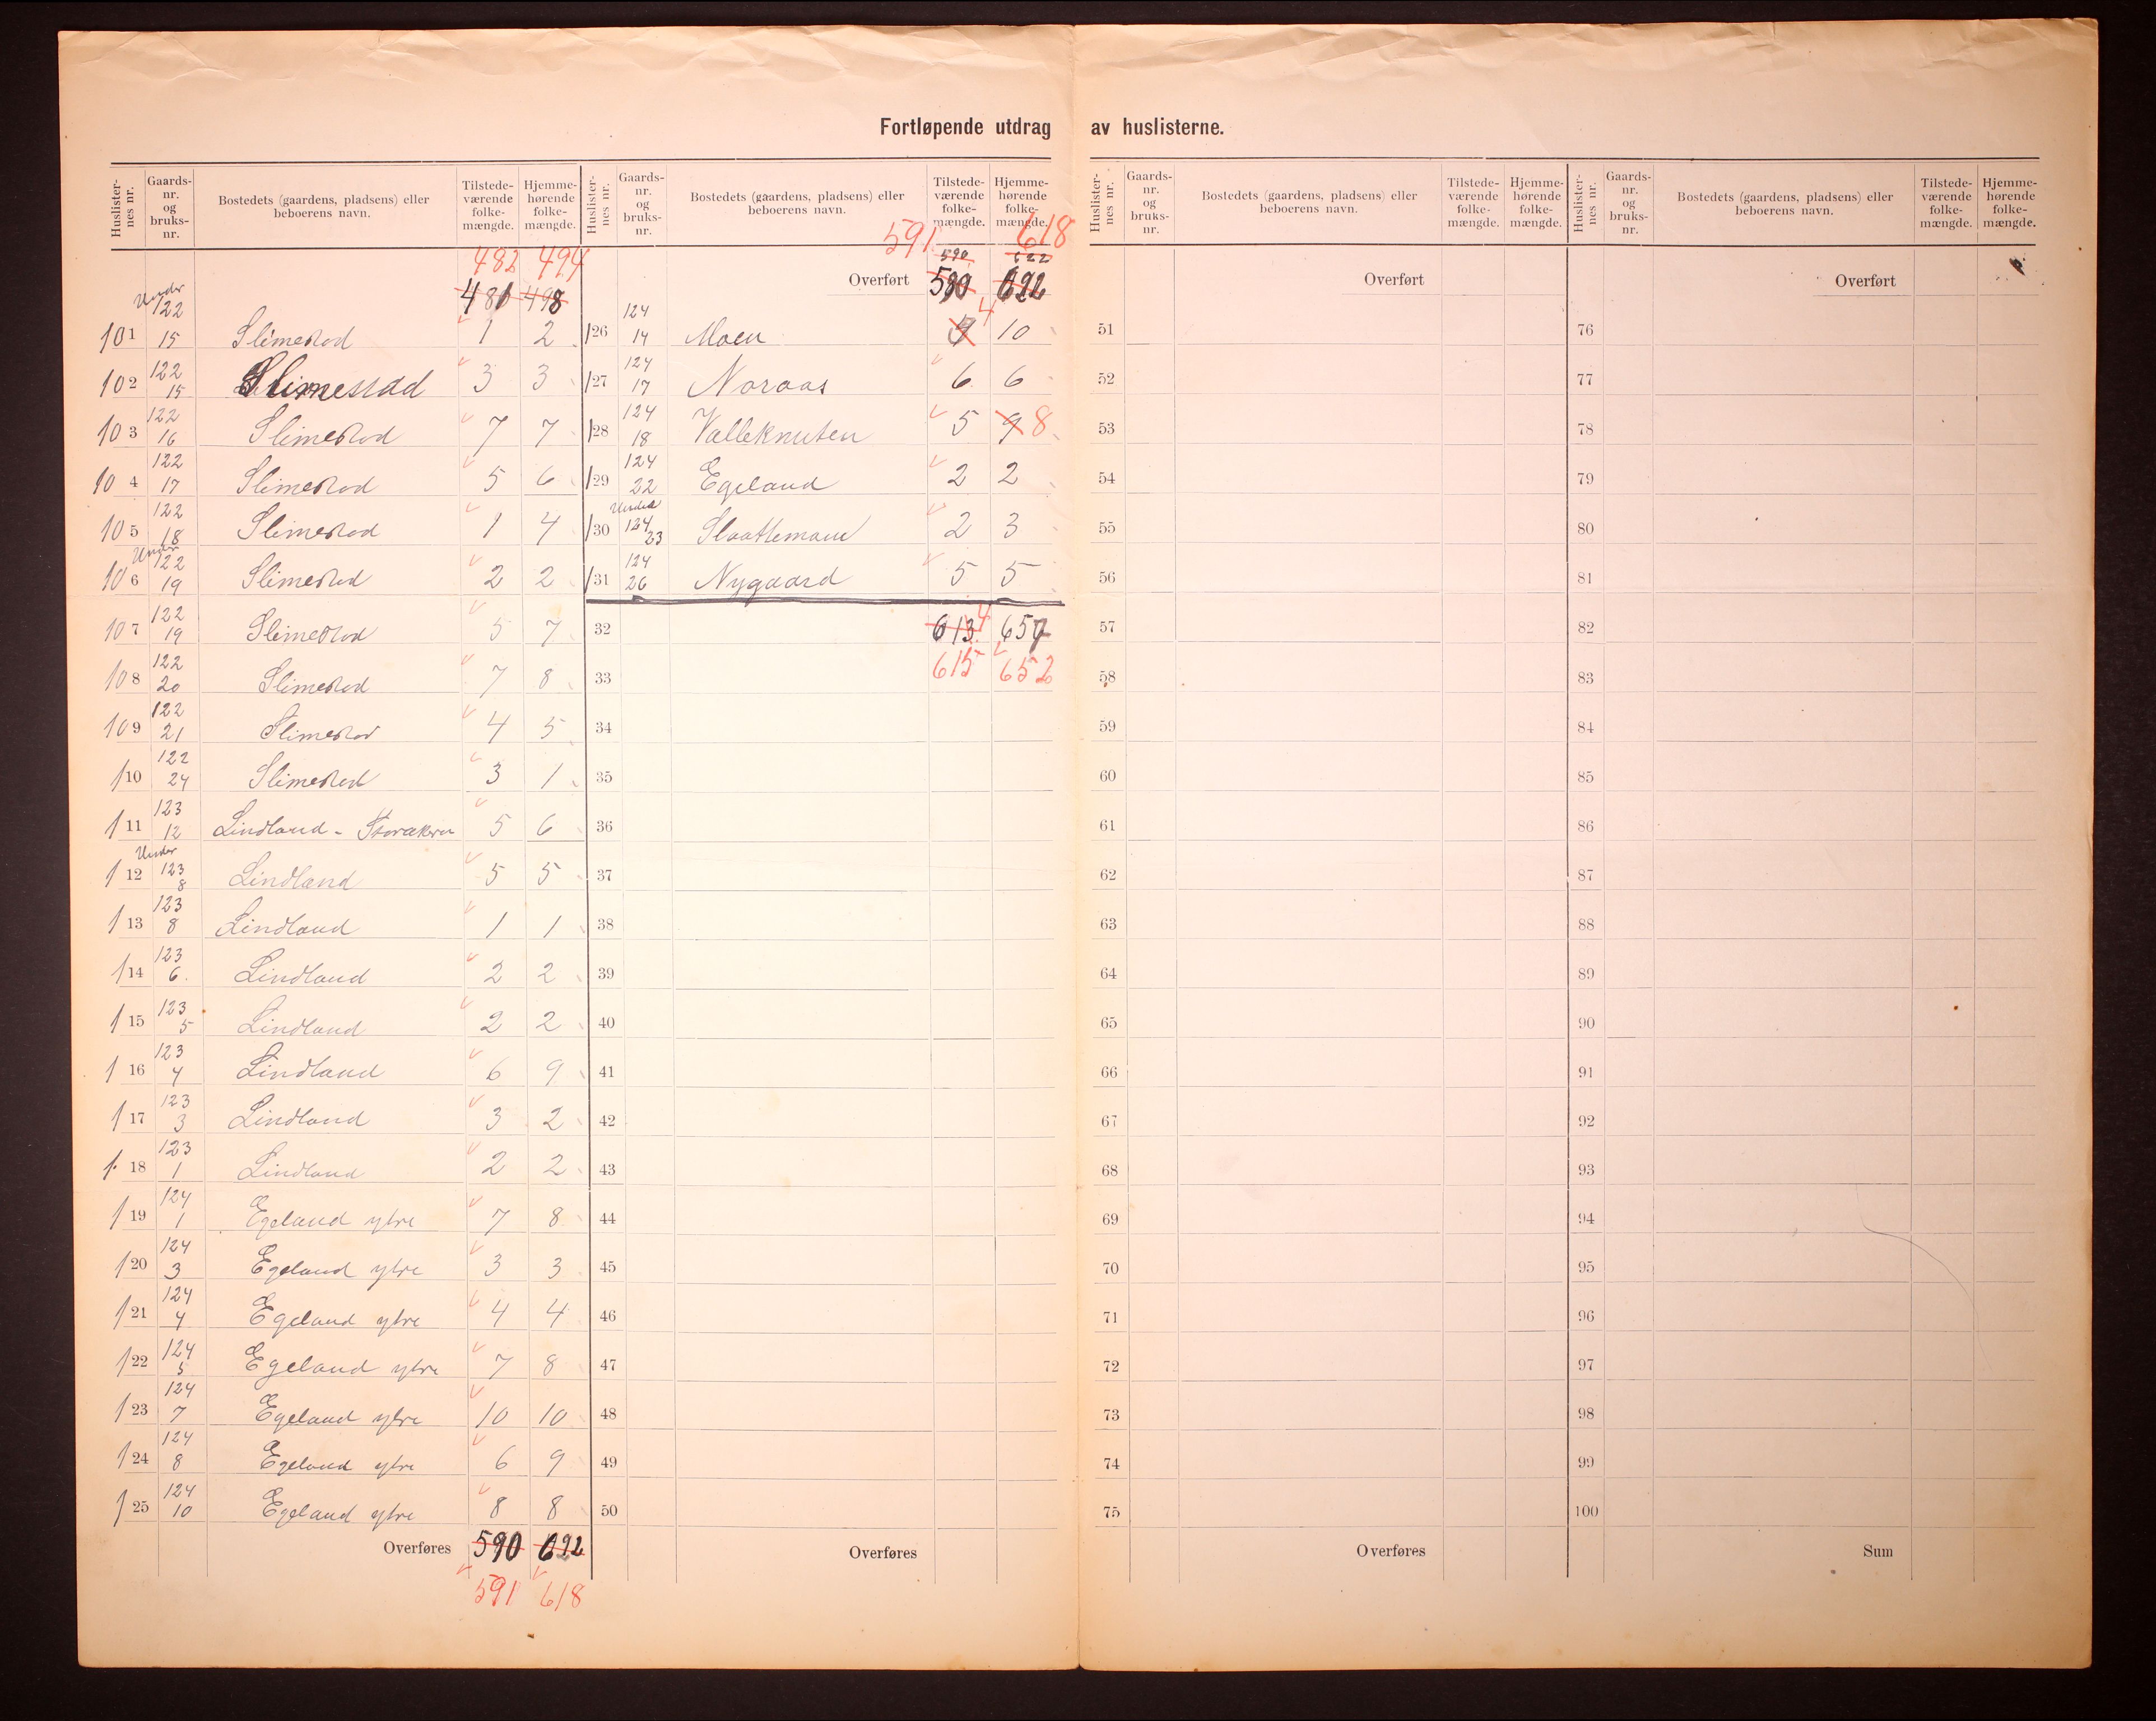 Fortløpende utdrag av huslisterne.
Huslister-nes nr. Gaards-nr. og bruks-nr. Bostedets (gaardens, pladsens) eller beboerens navn. Tilstede-værende folke-mængde. Hjemme-hørende folke-mængde.
482 494
481 498
101 Under 122 15 Slimestad 1 2
102 122 15 Slimestad 3 3
103 122 16 Slimestad 7 7
104 122 17 Slimestad 5 6
105 122 18 Slimestad 1 4
106 Under 122 19 Slimestad 2 2
107 122 19 Slimestad 5 7
108 122 20 Slimestad 7 8
109 122 21 Slimestad 4 5
110 122 24 Slimestad 3 1
111 123 12 Lindland - Storakeren 5 6
112 Under 123 8 Lindland 5 5
113 123 8 Lindland 1 1
114 123 6. Lindland 2 2
115 123 5 Lindland 2 2
116 123 4 Lindland 6 9
117 123 3 Lindland 3 2
118 123 1 Lindland 2 2
119 124 1 Egeland ytre 7 8
120 124 3 Egeland ytre 3 3
121 124 4 Egeland ytre 4 4
122 124 5 Egeland ytre 7 8
123 124 7 Egeland ytre 10 10
124 124 8 Egeland ytre 6 9
125 124 10 Egeland ytre 8 8
Overføres 590 622
591 618
Huslister-nes nr. Gaards-nr. og bruks-nr. Bostedets (gaardens, pladsens) eller beboerens navn. Tilstede-værende folke-mængde. Hjemme-hørende folke-mængde.
591 618
590 622
Overført 590 622
126 124 14 Moen 4 10
127 124 17 Noraas 6 6
128 124 18 Valleknuten 5 9 8
129 124 22 Egeland 2 2
130 Under 124 23 Slaattemoen 2 3
131 124 26 Nygaard 5 5
32 613 4 657
33 615 652
34
35
36
37
38
39
40
41
42
43
44
45
46
47
48
49
50
Overføres
Huslister-nes nr. Gaards-nr. og bruks-nr. Bostedets (gaardens, pladsens) eller beboerens navn. Tilstede-værende folke-mængde. Hjemme-hørende folke-mængde.
Overført
51
52
53
54
55
56
57
58
59
60
61
62
63
64
65
66
67
68
69
70
71
72
73
74
75
Overføres
Huslister-nes nr. Gaards-nr. og bruks-nr. Bostedets (gaardens, pladsens) eller beboerens navn. Tilstede-værende folke-mængde. Hjemme-hørende folke-mængde.
Overført
76
77
78
79
80
81
82
83
84
85
86
87
88
89
90
91
92
93
94
95
96
97
98
99
100
Sum